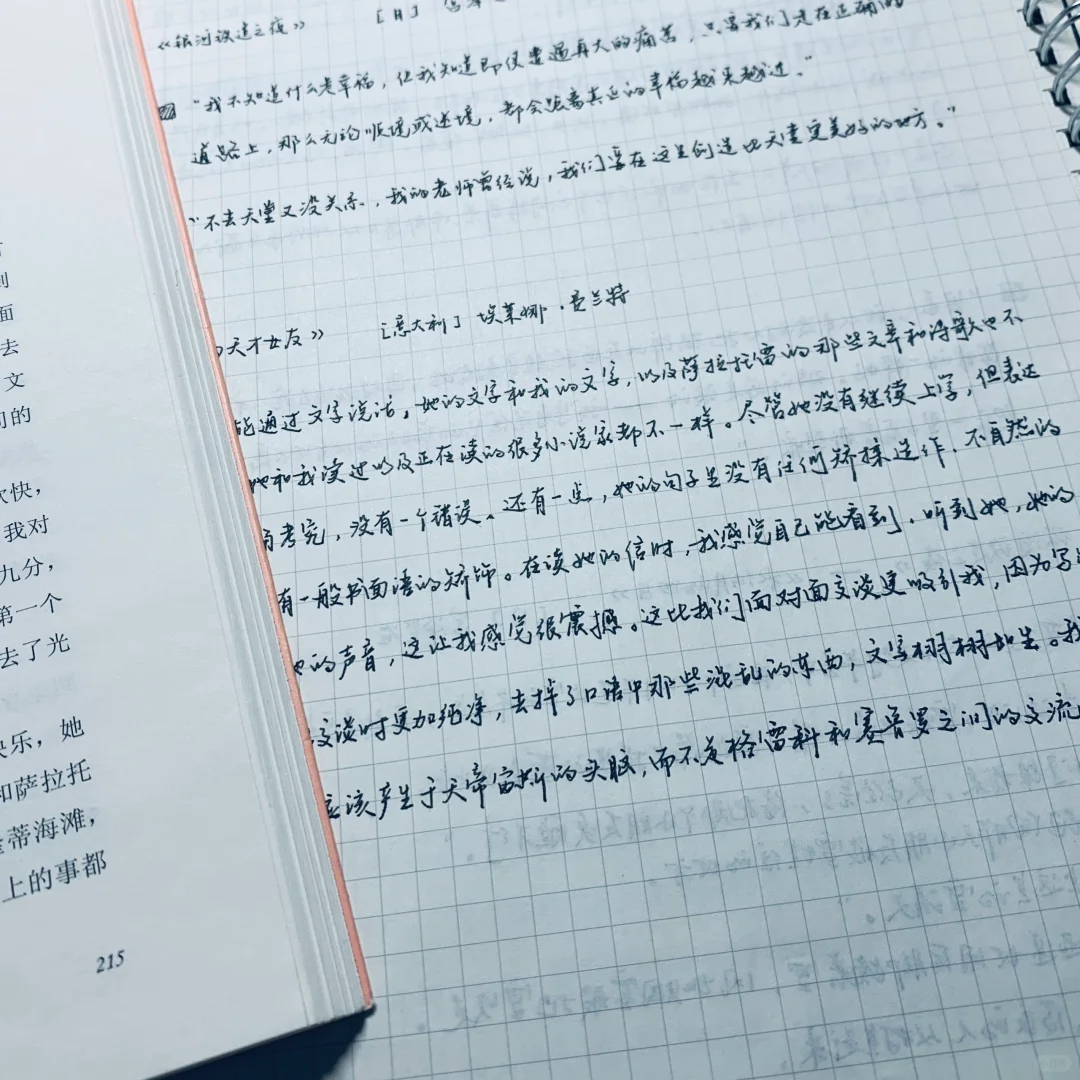 《银河铁道之夜》 [日] 宫泽
“我不知道什么是幸福，但我知道即便遭遇再大的痛苦，只要我们是在正确的
道路上，那么无论顺境或逆境，都会距离真正的幸福越来越近。”
“不去天堂又没关系，我的老师曾经说，我们要在这里创造比天堂更美好的地方。”
天才女友》 [意大利] 埃莱娜·费兰特
能通过文字说话。她的文字和我的文字，以及萨拉托雷的那些文章和诗歌也不
她和我读过以及正在读的很多小说家都不一样。尽管她没有继续上学，但表达
考究，没有一个错误。还有一点，她的句子里没有任何矫揉造作、不自然的
有一般书面语的矫饰。在读她的信时，我感觉自己能看到、听到她，她的
的声音，这让我感觉很震撼。这比我们面对面交谈更吸引我，因为写
交谈时更加纯净，去掉了口语中那些混乱的东西，文字栩栩如生。我
应该产生于天帝宙斯的头脑，而不是格雷科和赛鲁罗之间的交流
到
面
去
文
间的
欢快，
我对
九分，
第一个
去了光
快乐，她
和萨拉托
蒂海滩，
上的事都
215